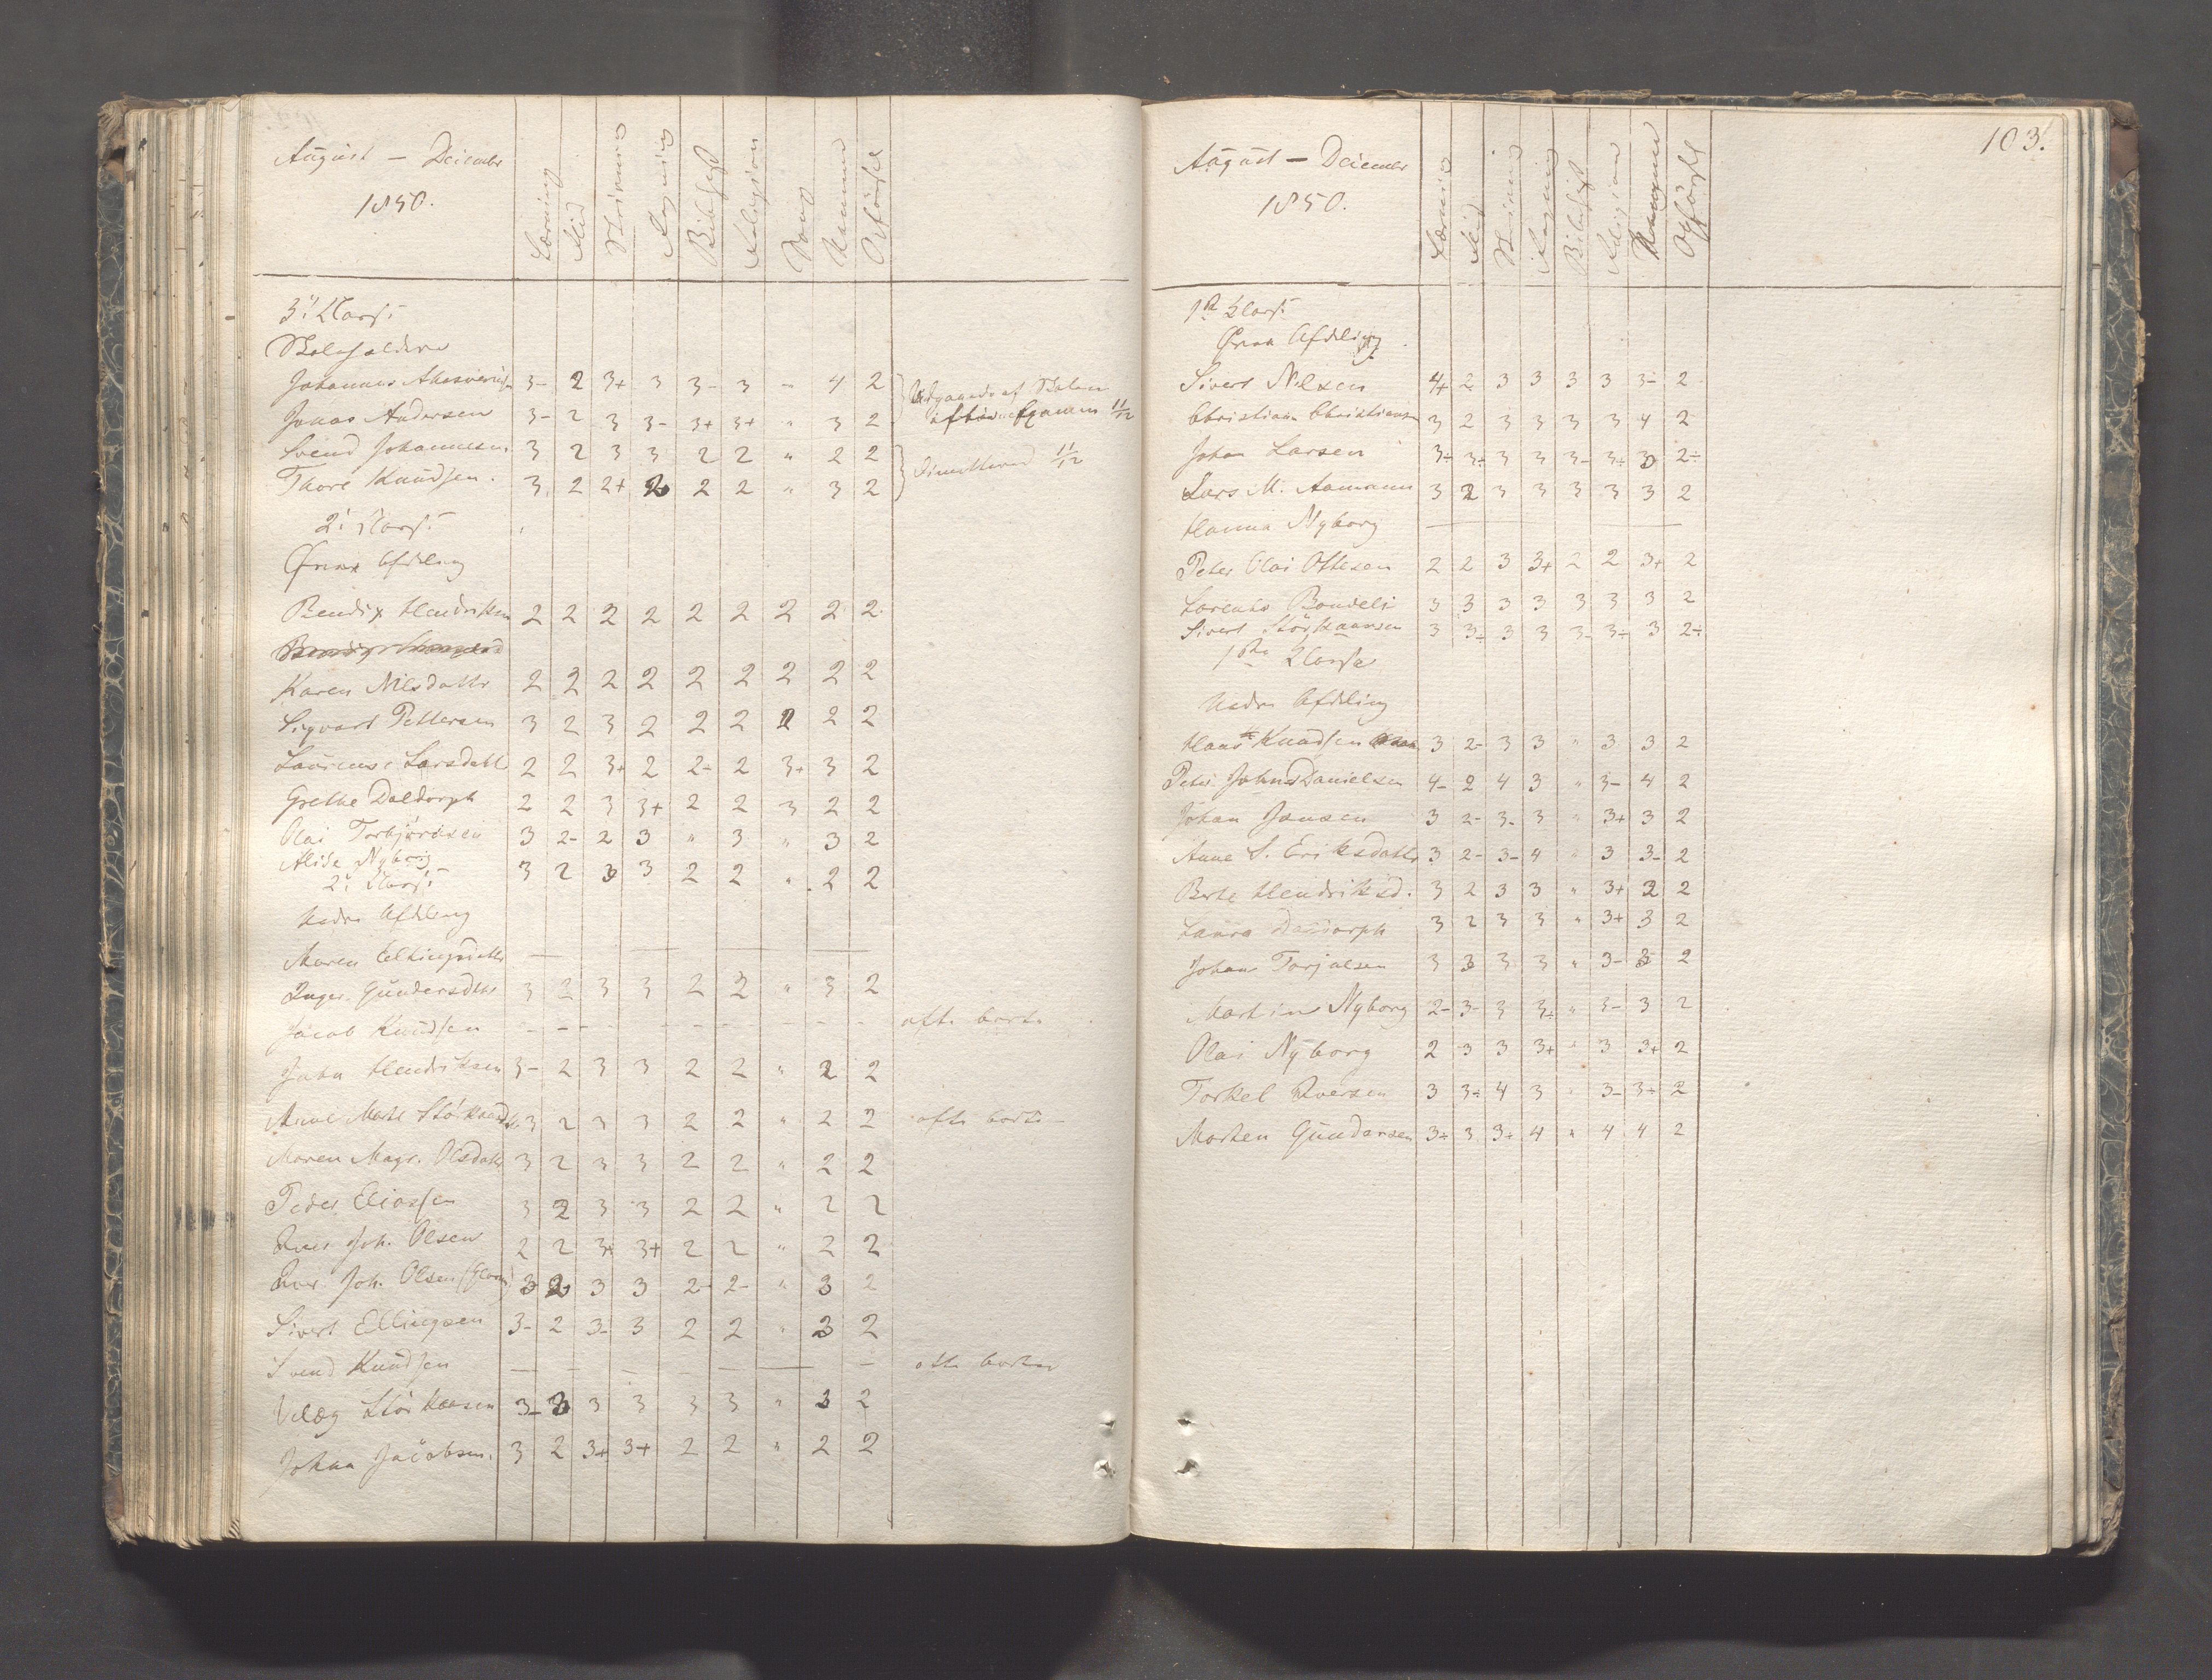 August – Deiember
1850.
Læsning Flid Skrivning Regning Bibelhist Religion Sang Examen Opførsel
3! Classe
Johannes Ahasverus 3- 2 3+ 3 3- 3 " 4 2 } Udgaaede af Skolen
Jonas Andersen 3- 2 3 3- 3+ 3+ " 3 2 efter Examen 11/12
Svend Johannesen 3 2 3 3 2 2 " 2 2 } Dimitterad 11/12
Thore Knudsen. 3 2 2+ 2 2 2 " 3 2
2! Classe
Øvre Afdeling
Bendix Hendriksen 2 2 2 2 2 2 2 2 2
Karen Nilsdattr 2 2 2 2 2 2 2 2 2
Sigvart Pettersen 3 2 3 2 2 2 2 2 2
Laurense Larsdattr 2 2 3+ 2 2- 2 3+ 3 2
Grethe Daldorph 2 2 3 3+ 2 2 3 2 2
Olai Torbjørnsen 3 2- 2 3 " 3 " 3 2
Alida Nyborg 3 2 3 3 2 2 " 2 2
2! Classe
Nedre Afdeling
Maren Ellingsdattr — — — —
Inger Gundersdtr 3 2 3 3 2 2 " 3 2
Jacob Knudsen - - - - - - - - - ofte borte
John Hendriksen 3- 2 3 3 2 2 " 2 2
Anne Marte Størksd. 3 2 3 3 2 2 " 2 2 ofte borte -
Maren Magr. Olsdattr 3 2 3 3 2 2 " 2 2
Peder Eliassen 3 2 3 3 2 2 " 2 2
Iver Joh. Olsen 2 2 3+ 3+ 2 2 " 2 2
Iver Joh. Olsen 3 2 3 3 2- 2- " 3 2
Sivert Ellingsen 3- 2 3- 3 2 2 " 3 2
Svend Knudsen — - — - — - ofte borte
Størkersen 3- 3 3 3 3 3 " 3 2
Johan Jacobsen. 3 2 3+ 3+ 2 2 " 2 2
103.
August – Deiember
1850.
Læsning Flid Skrivning Regning Bibelhist Religion Examen Opførsel
1ste Classe
Øvre Afdeling
Sivert Nilsen 4+ 2 3 3 3 3 3- 2
Christian Christiansen 3 2 3 3 3 3 4 2
Johan Larsen 3÷ 3÷ 3 3 3- 3÷ 3 2÷
Lars M. Aamann 3 2 3 3 3 3 3 2
Hanna Nyborg —
Peter Olai Ottesen 2 2 3 3+ 2 2 3+ 2
Lorents Bondeli 3 3 3 3 3 3 3 2
Sivert Størksansen 3 3÷ 3 3 3- 3÷ 3 2÷
1ste Classe
Nedre Afdeling
Hans Knudsen 3 2- 3 3 " 3 3 2
Peter Johns Danielsen 4- 2 4 3 " 3- 4 2
Johan Jansen 3 2- 3- 3 " 3+ 3 2
Anne S. Eriksdattr 3 2- 3- 4 " 3 3- 2
Berte Hendriksd. 3 2 3 3 " 3+ 2 2
Laura Daldorph 3 2 3 3 " 3+ 3 2
Johan Torjulsen 3 3 3 3 " 3- 3 2
Martin Nyborg 2- 3- 3 3÷ " 3- 3 2
Olai Nyborg 2 3 3 3+ " 3 3+ 2
Torkel Iversen 3 3÷ 4 3 " 3- 3÷ 2
Morten Gundersen 3+ 3 3+ 4 " 4 4 2